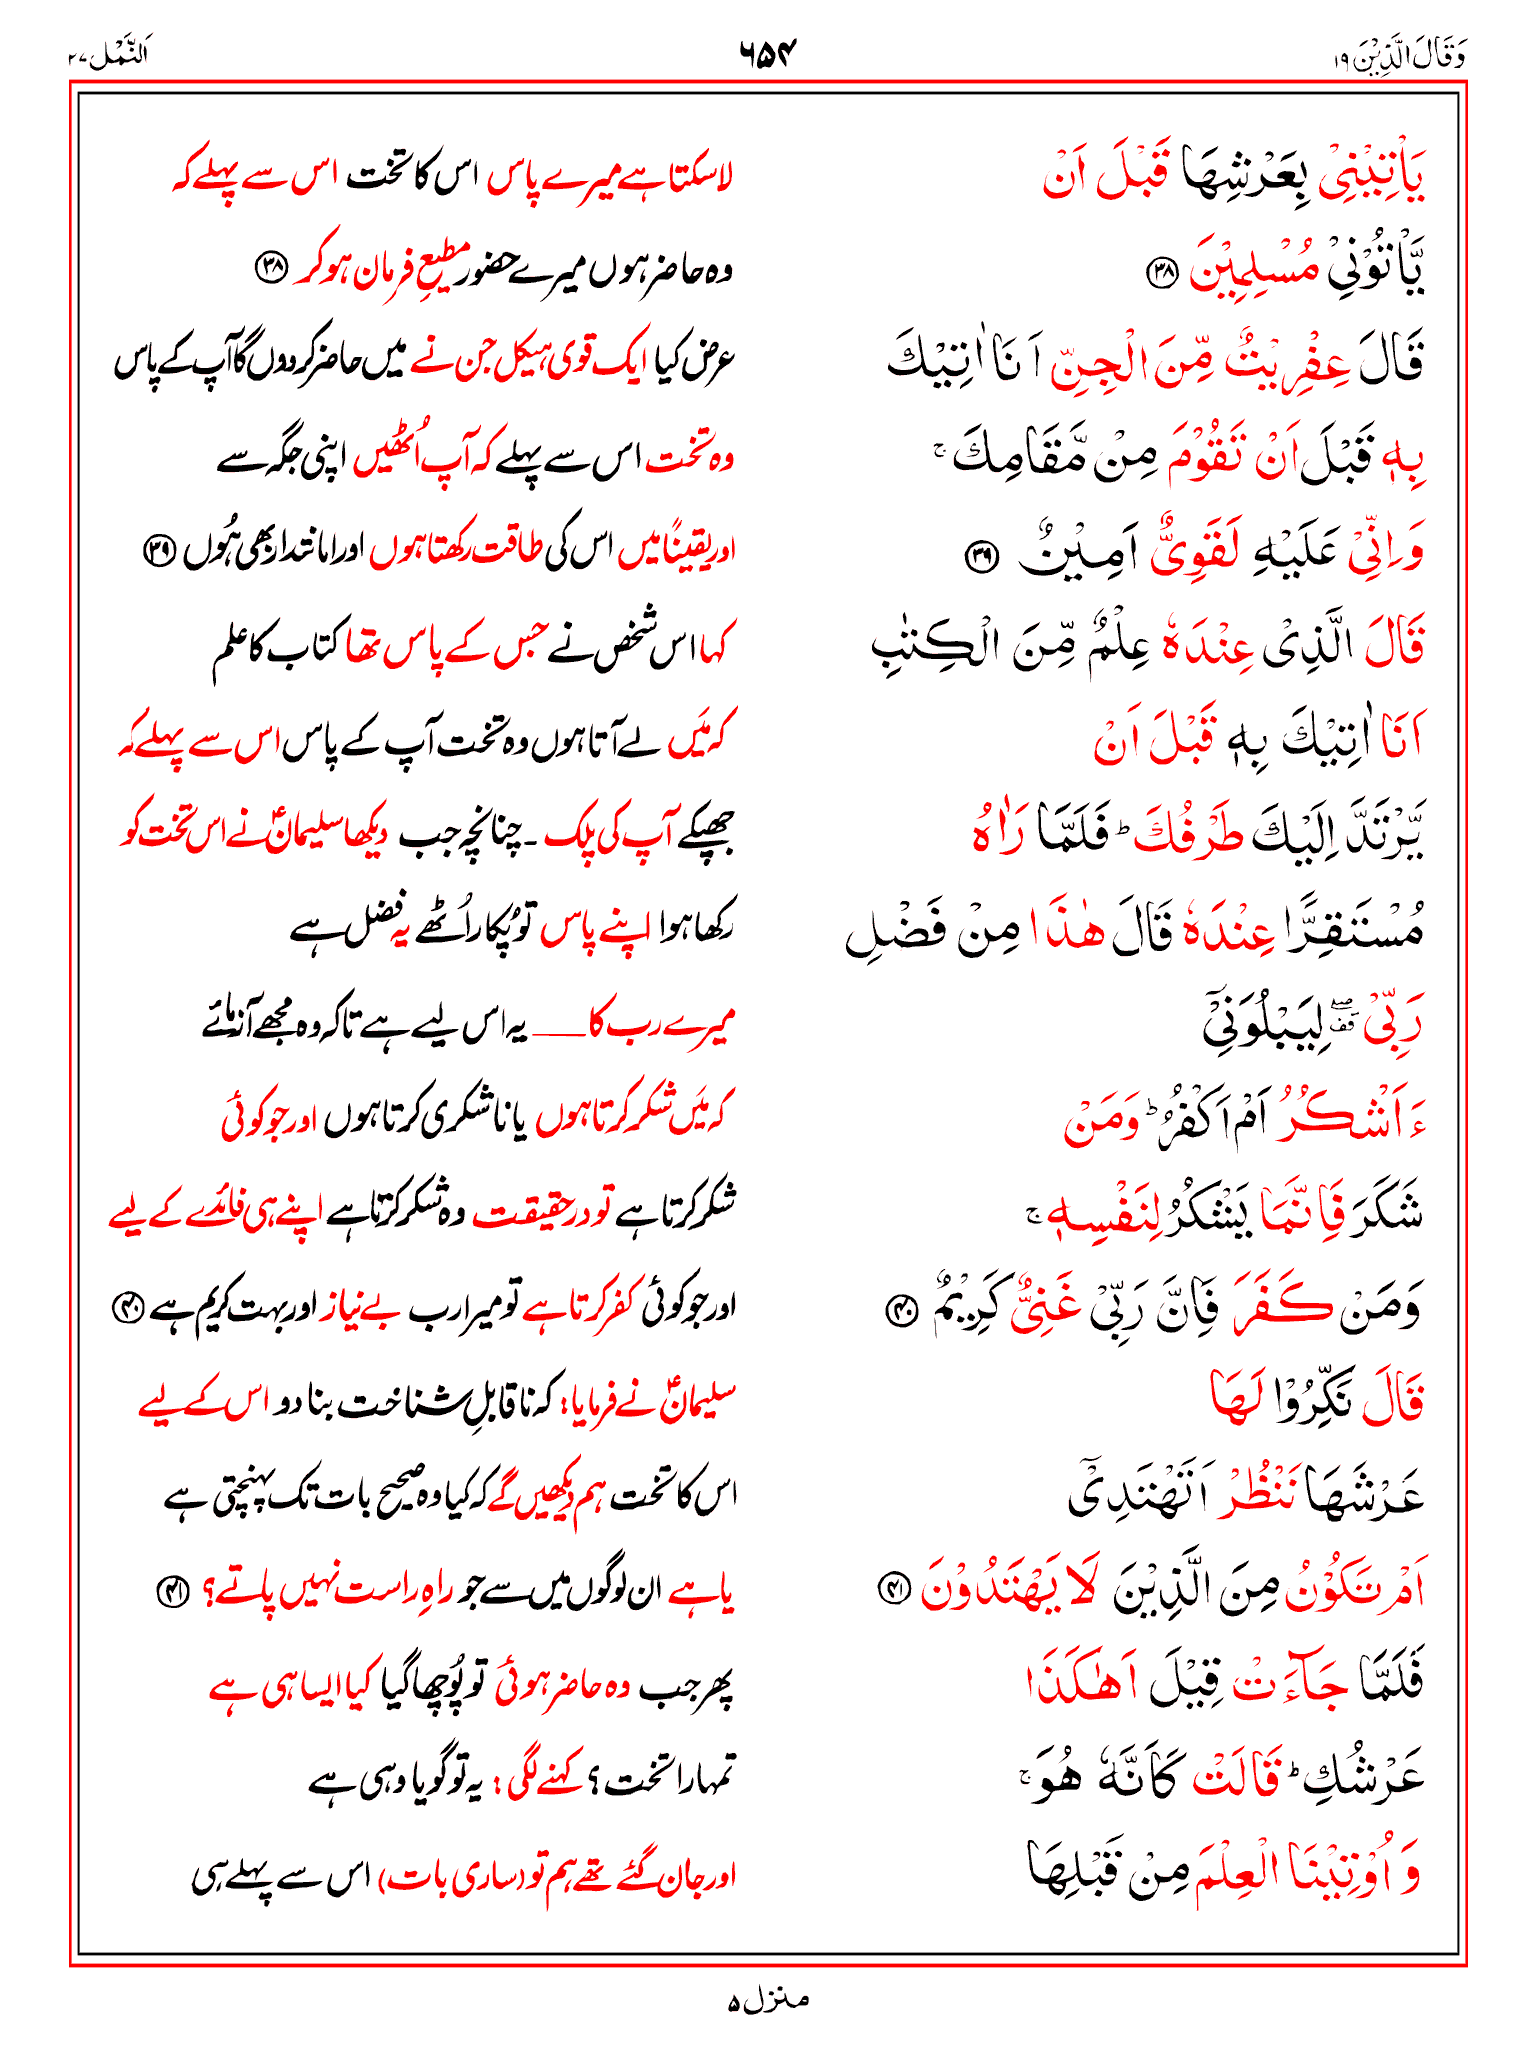 وَقَالَ الَّذِیْنَ ۱۹
۶۵۴
اَلنَّمْل ۲۷
یَاْتِیْنِیْ بِعَرْشِهَا قَبْلَ اَنْ
لاسکتا ہے میرے پاس اس کا تخت اس سے پہلے کہ
یَّاْتُوْنِیْ مُسْلِمِیْنَ ۳۸
وہ حاضر ہوں میرے حضور مطیعِ فرمان ہو کر ۳۸
قَالَ عِفْرِیْتٌ مِّنَ الْجِنِّ اَنَا اٰتِیْكَ
عرض کیا ایک قوی ہیکل جن نے میں حاضر کردوں گا آپ کے پاس
بِهٖ قَبْلَ اَنْ تَقُوْمَ مِنْ مَّقَامِكَ ۚ
وہ تخت اس سے پہلے کہ آپ اُٹھیں اپنی جگہ سے
وَاِنِّیْ عَلَیْهِ لَقَوِیٌّ اَمِیْنٌ ۳۹
اور یقیناً میں اس کی طاقت رکھتا ہوں اور امانتدار بھی ہُوں ۳۹
قَالَ الَّذِیْ عِنْدَهٗ عِلْمٌ مِّنَ الْكِتٰبِ
کہا اس شخص نے جس کے پاس تھا کتاب کا علم
اَنَا اٰتِیْكَ بِهٖ قَبْلَ اَنْ
کہ مَیں لے آتا ہوں وہ تخت آپ کے پاس اس سے پہلے کہ
یَّرْتَدَّ اِلَیْكَ طَرْفُكَ ؕ فَلَمَّا رَاٰهُ
جھپکے آپ کی پلک ۔ چنانچہ جب دیکھا سلیمانؑ نے اس تخت کو
مُسْتَقِرًّا عِنْدَهٗ قَالَ هٰذَا مِنْ فَضْلِ
رکھا ہوا اپنے پاس تو پُکار اُٹھے یہ فضل ہے
رَبِّیْ ۖقف لِیَبْلُوَنِیْۤ
میرے رب کا ـــــ یہ اس لیے ہے تاکہ وہ مجھے آزمائے
ءَاَشْكُرُ اَمْ اَكْفُرُ ؕ وَمَنْ
کہ مَیں شکر کرتا ہوں یا ناشکری کرتا ہوں اور جو کوئی
شَكَرَ فَاِنَّمَا یَشْكُرُ لِنَفْسِهٖ ۚ
شکر کرتا ہے تو درحقیقت وہ شکر کرتا ہے اپنے ہی فائدے کے لیے
وَمَنْ كَفَرَ فَاِنَّ رَبِّیْ غَنِیٌّ كَرِیْمٌ ۴۰
اور جو کوئی کفر کرتا ہے تو میرا رب بے نیاز اور بہت کریم ہے ۴۰
قَالَ نَكِّرُوْا لَهَا
سلیمانؑ نے فرمایا: کہ ناقابلِ شناخت بنا دو اس کے لیے
عَرْشَهَا نَنْظُرْ اَتَهْتَدِیْۤ
اس کا تخت ہم دیکھیں گے کہ کیا وہ صحیح بات تک پہنچتی ہے
اَمْ تَكُوْنُ مِنَ الَّذِیْنَ لَا یَهْتَدُوْنَ ۴۱
یا ہے ان لوگوں میں سے جو راہِ راست نہیں پاتے؟ ۴۱
فَلَمَّا جَآءَتْ قِیْلَ اَهٰكَذَا
پھر جب وہ حاضر ہوئی تو پُوچھا گیا کیا ایسا ہی ہے
عَرْشُكِ ؕ قَالَتْ كَاَنَّهٗ هُوَ ۚ
تمہارا تخت؟ کہنے لگی: یہ تو گویا وہی ہے
وَاُوْتِیْنَا الْعِلْمَ مِنْ قَبْلِهَا
اور جان گئے تھے ہم تو (ساری بات) اس سے پہلے ہی
منزل ۵